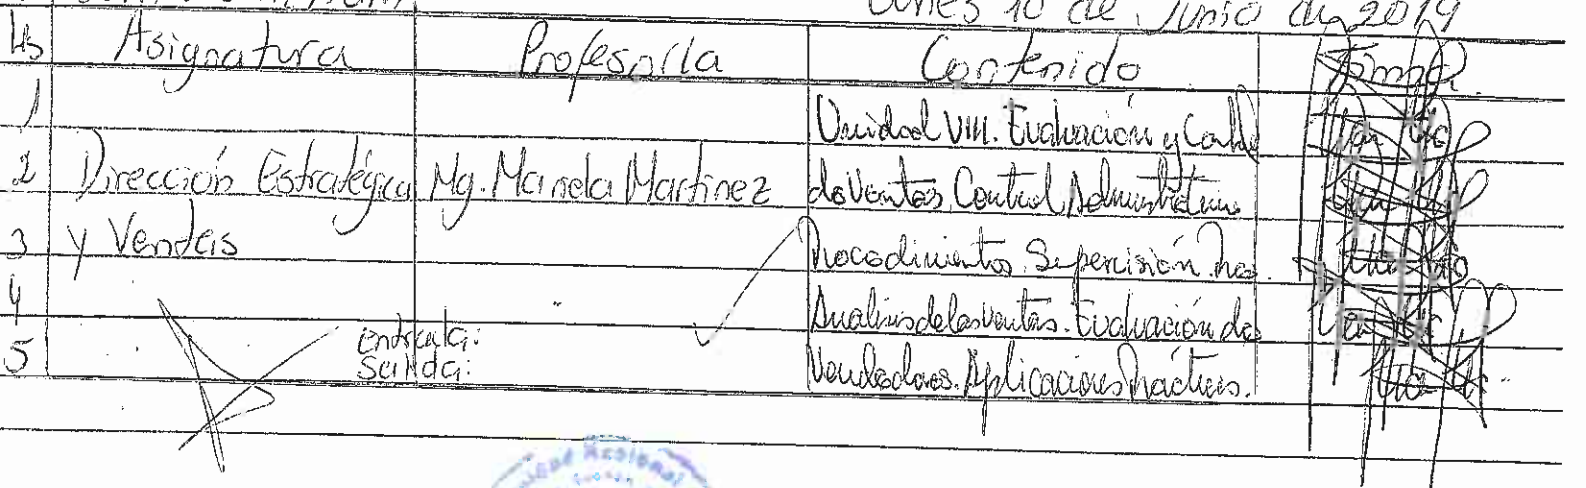 Lunes 10 de Junio de 2019
Hs Asignatura Profesor/a Contenido Firma
1 Unidad VIII. Evaluación y Control
2 Dirección Estratégica Mg. Mariela Martinez de Ventas. Control Administrativo
3 y Ventas Procedimientos. Supervisión.
4 Analisis de las Ventas. Evaluación de
5 entrada: Vendedores. Aplicaciones Prácticas.
Salida:
Regional